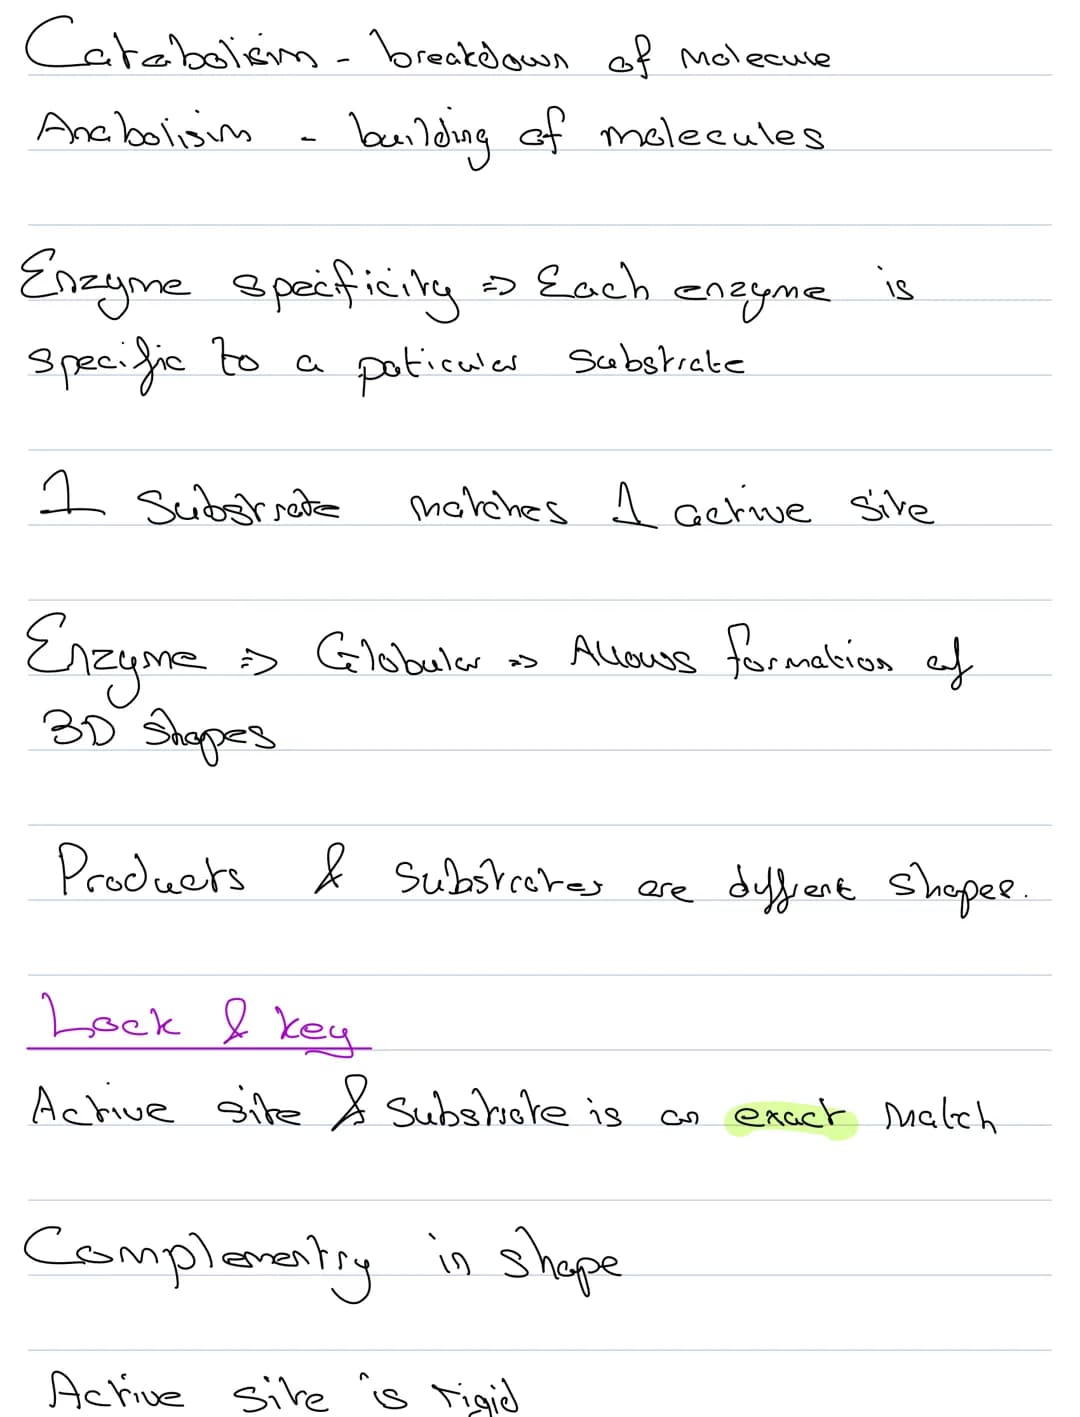 Catabolism - breakdown of molecule
Anabolisim - building of molecules
Enzyme specificity => Each enzyme is
specific to a paticular substrate
1 substrate matches 1 active site
Enzyme => Globular => Allows formation of
3D shapes
Products & substrates are diffrent shapes.
Lock & key
Active site & substrate is an exact match
Complementry in shape
Active site is rigid